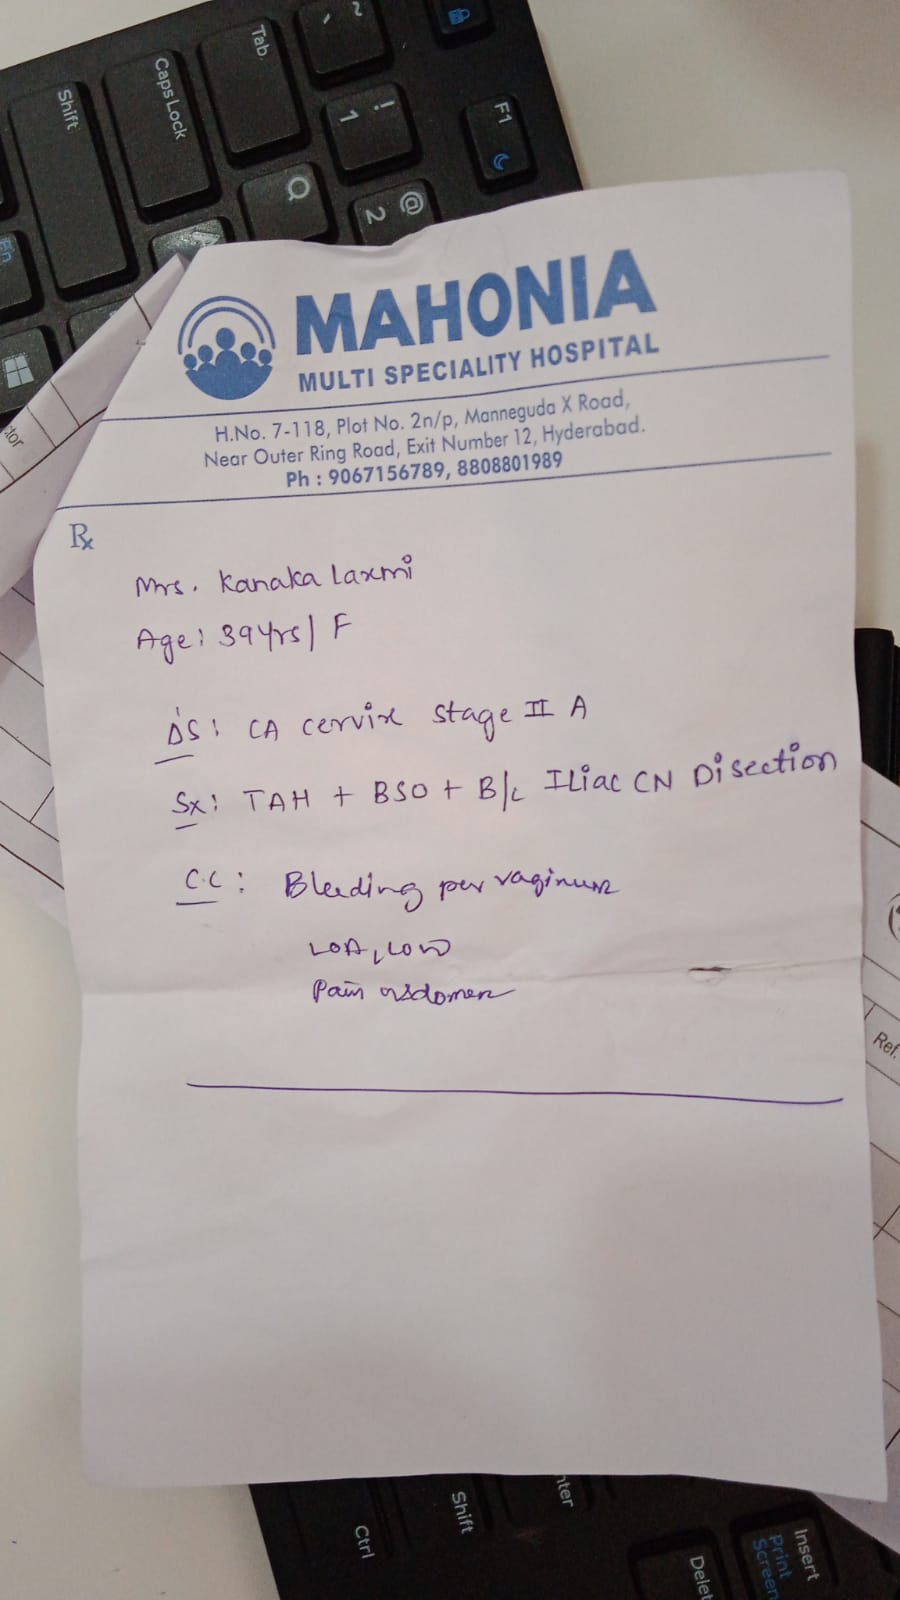 ~
`
Tab
Caps Lock
Shift
!
1
F1
@
2
Q
A
Fn
ctor
MAHONIA
MULTI SPECIALITY HOSPITAL
H.No. 7-118, Plot No. 2n/p, Manneguda X Road,
Near Outer Ring Road, Exit Number 12, Hyderabad.
Ph : 9067156789, 8808801989
Rx
Mrs. Kanaka Laxmi
Age: 39 Yrs / F
DS: CA cervix stage II A
Sx: TAH + BSO + B/L Iliac CN Disection
C.C: Bleeding per vaginum
LOA, LOW
Pain abdomen
Ref.
nter
Shift
Ctrl
Insert
Print
Screen
Delet